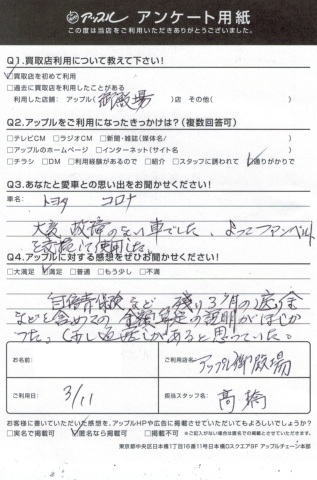 アップル アンケート用紙
この度は当店をご利用いただきありがとうございました。
Q1.買取店利用について教えて下さい!
☑買取店を初めて利用
□過去に買取店を利用したことがある
利用した店舗: アップル( 御殿場 )店 その他( )
Q2.アップルをご利用になったきっかけは?(複数回答可)
□テレビCM □ラジオCM □新聞・雑誌(媒体名/ )
□アップルのホームページ □インターネット(サイト名 )
□チラシ □DM □利用経験があるので □紹介 □スタッフに誘われて ☑通りがかりで
Q3.あなたと愛車との思い出をお聞かせください!
車名: トヨタ コロナ
大変故障のない車でした、よってファンベルト
を交換して使用した。
Q4.アップルに対する感想をぜひお聞かせください!
□大満足 ☑満足 □普通 □もう少し □不満
自倍責保険など 残り3ヶ月の返金
などを含めての金額算定の説明がほしか
った、くわし
があると思っていた。
お名前:
ご利用店名: アップル御殿場
ご利用日: 3/11
担当スタッフ名: 高橋
お客様に書いていただいた感想を、アップルHPや広告に掲載させていただいてもよろしいでしょうか?
□実名で掲載可 ☑匿名なら掲載可 □掲載不可 ※ご記入がない場合は匿名での掲載とさせていただきます。
東京都中央区日本橋1丁目16番11号日本橋Dスクエア9F アップルチェーン本部